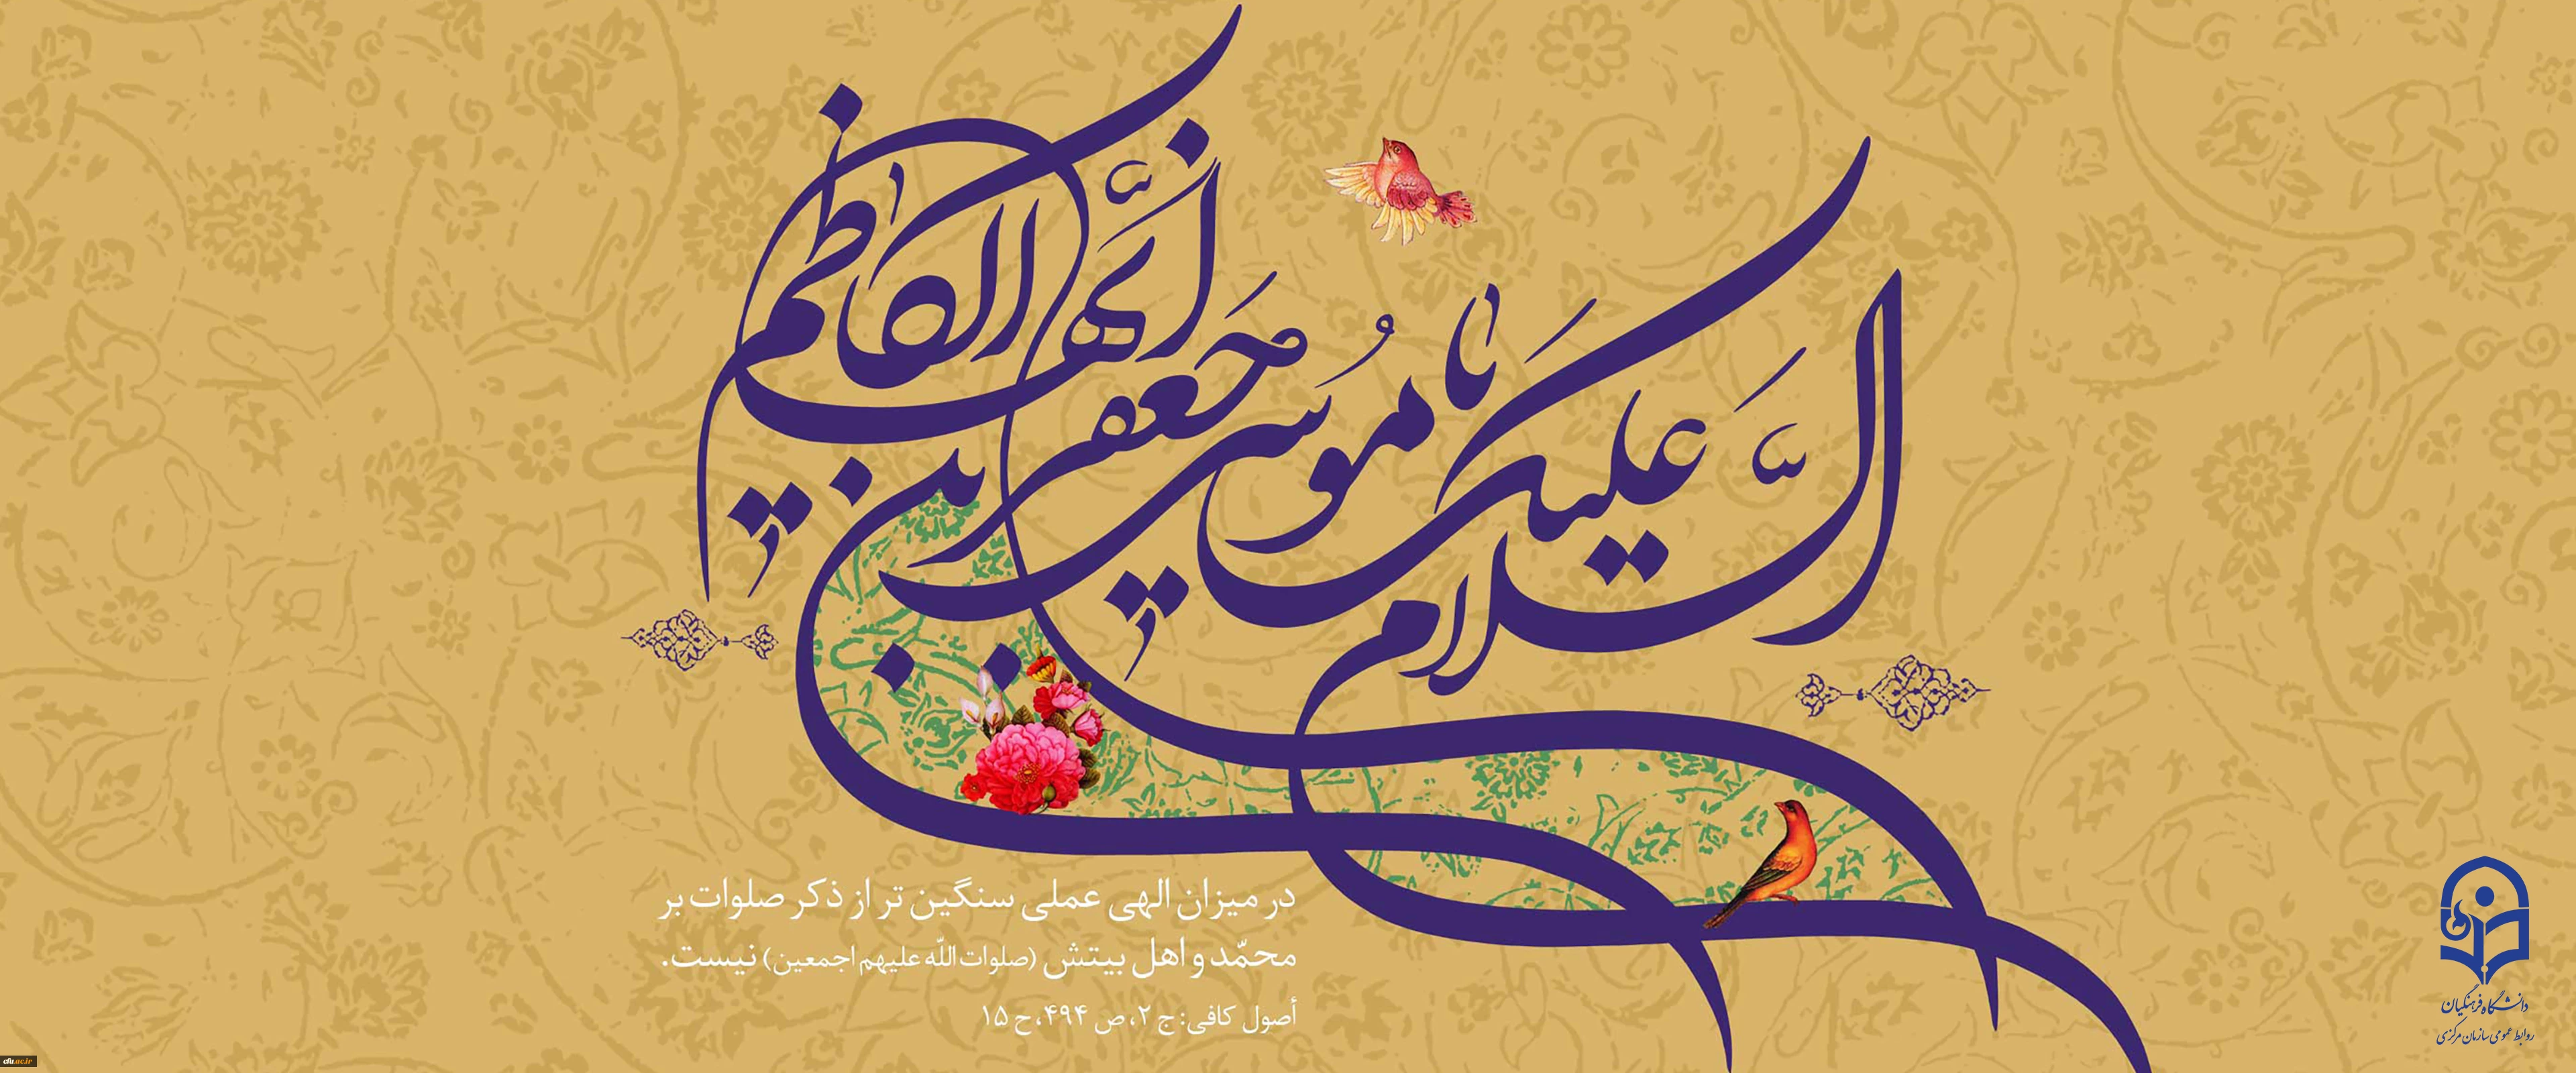 السَّلام عَلیکَ یا مُوسَی بن جَعفر أیُّهَا الکاظم
در میزان الهی عملی سنگین تر از ذکر صلوات بر
محمّد و اهل بیتش (صلوات اللّه علیهم اجمعین) نیست.
أصول کافی: ج ۲، ص ۴۹۴، ح ۱۵
دانشگاه فرهنگیان
روابط عمومی سازمان مرکزی
cfu.ac.ir